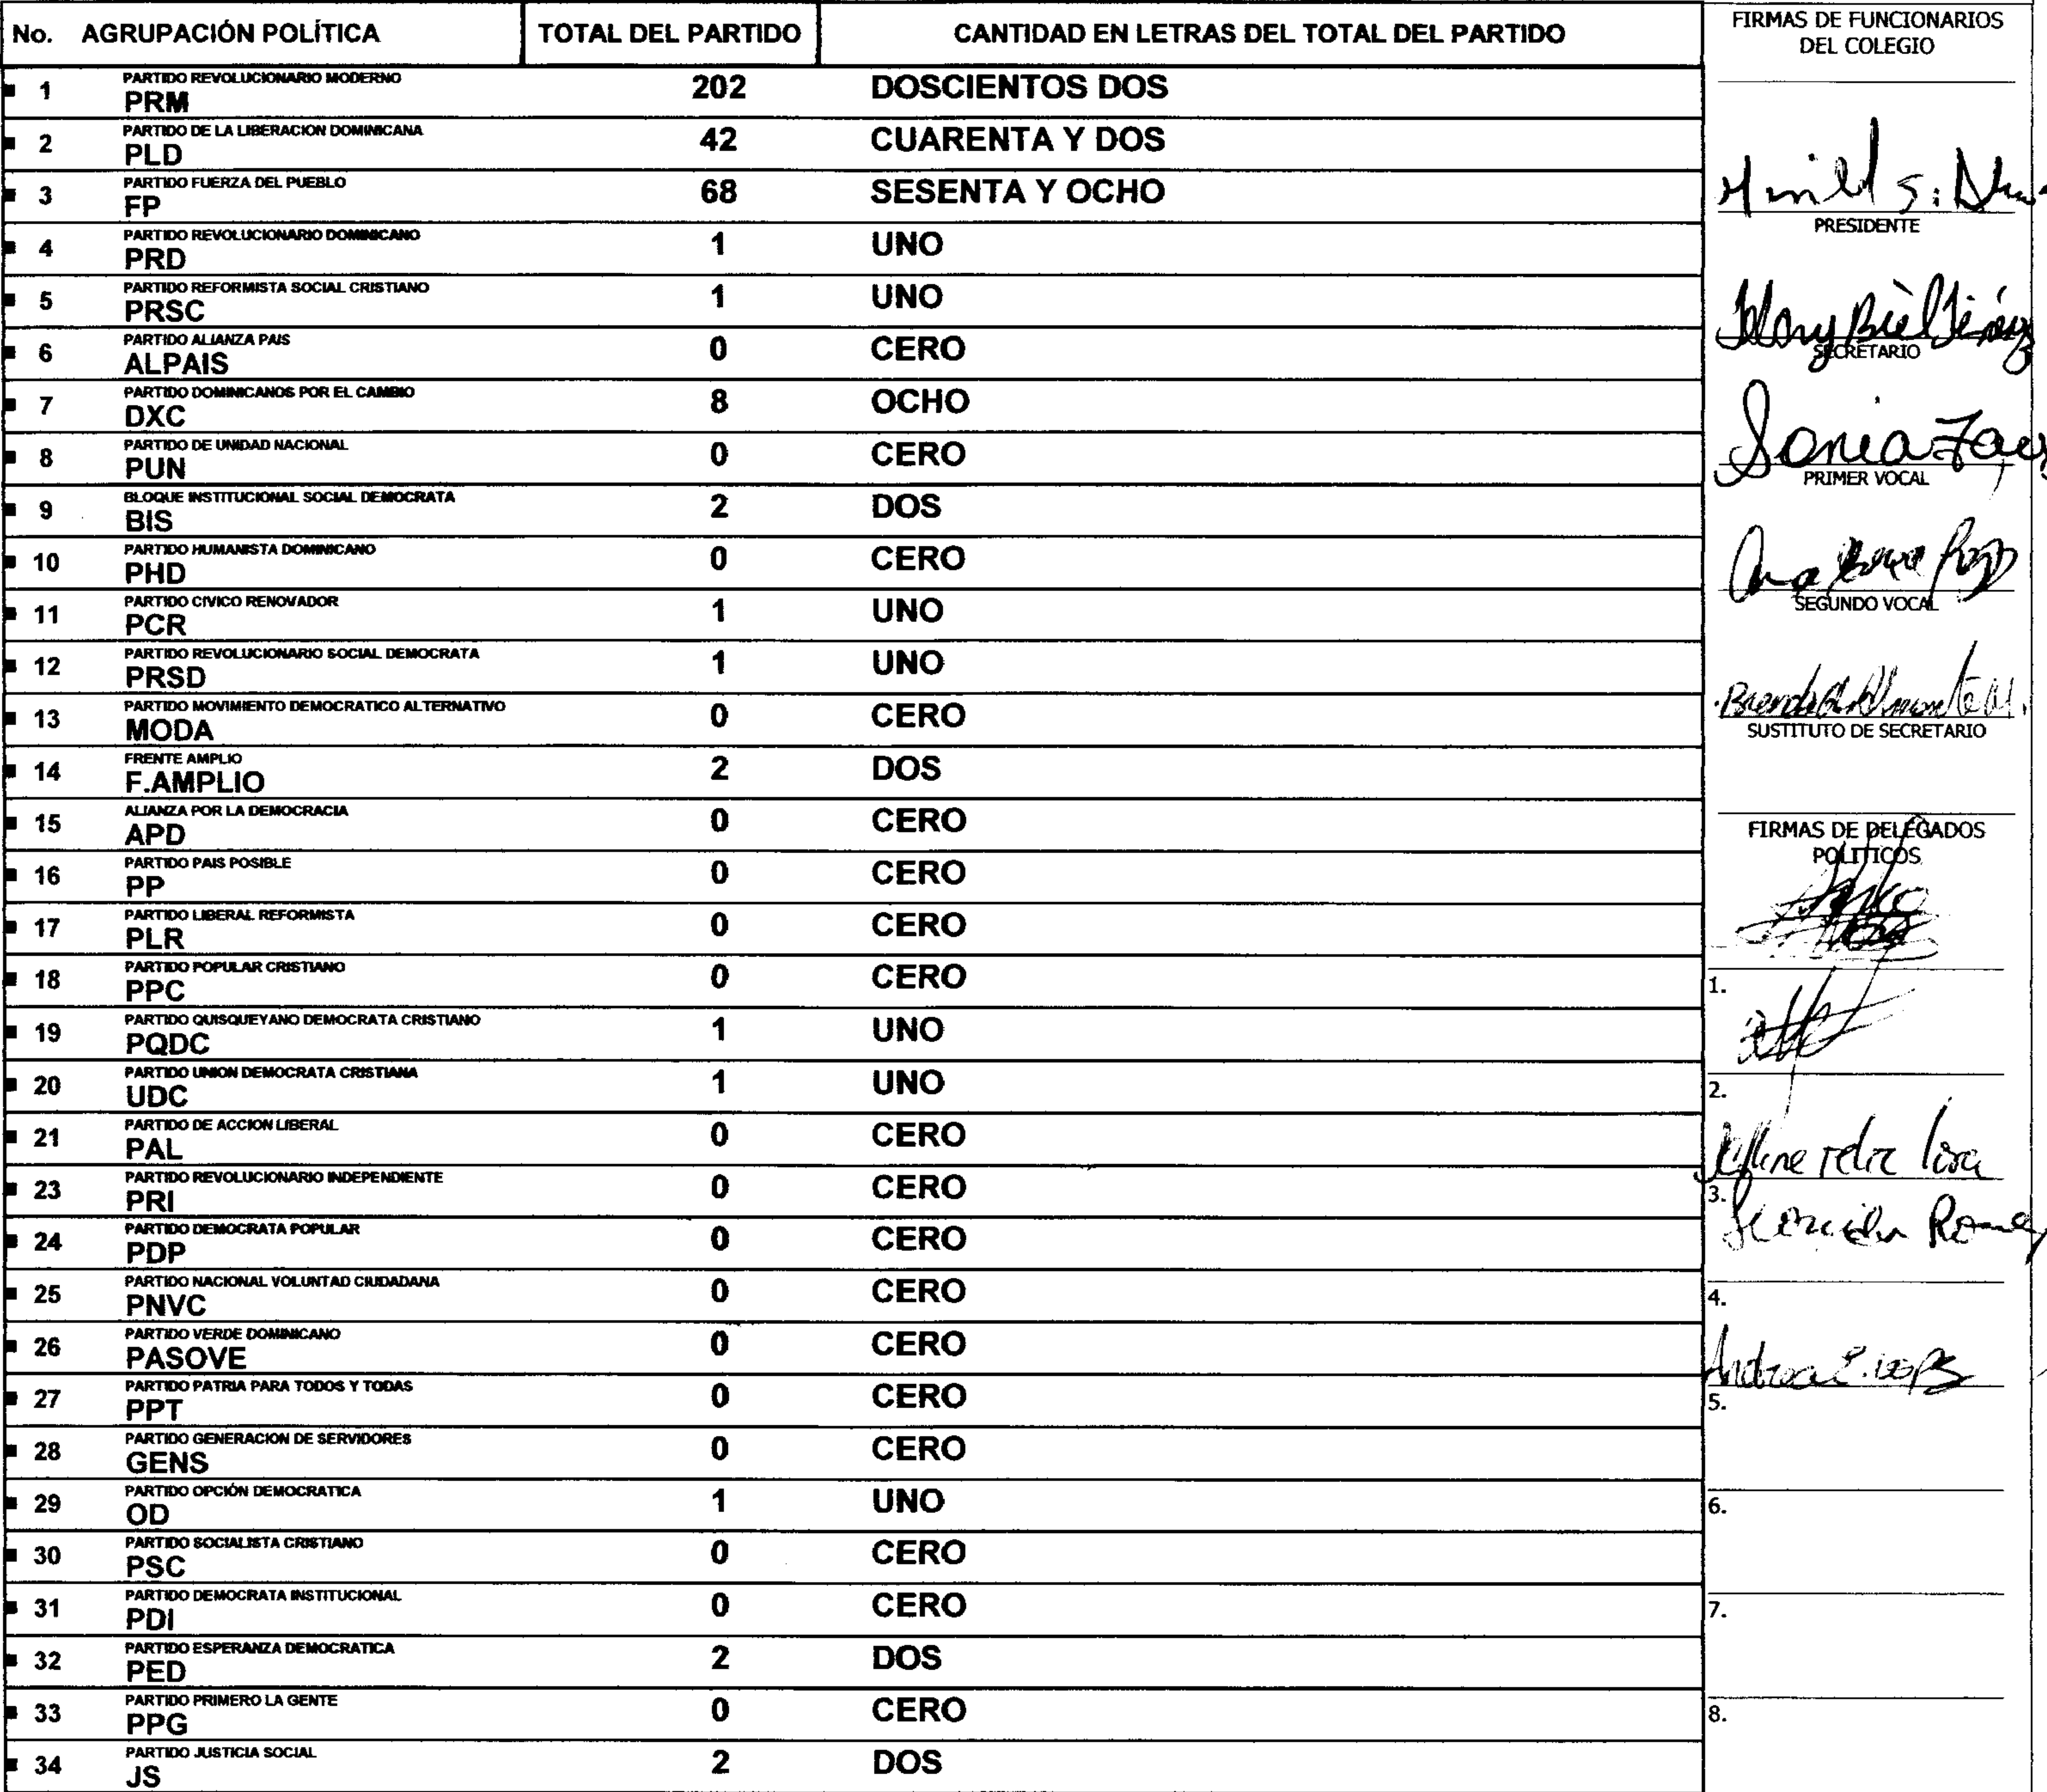 No. AGRUPACIÓN POLÍTICA TOTAL DEL PARTIDO CANTIDAD EN LETRAS DEL TOTAL DEL PARTIDO
PARTIDO REVOLUCIONARIO MODERNO
1 PRM 202 DOSCIENTOS DOS
PARTIDO DE LA LIBERACION DOMINICANA
2 PLD 42 CUARENTA Y DOS
PARTIDO FUERZA DEL PUEBLO
3 FP 68 SESENTA Y OCHO
PARTIDO REVOLUCIONARIO DOMINICANO
4 PRD 1 UNO
PARTIDO REFORMISTA SOCIAL CRISTIANO
5 PRSC 1 UNO
PARTIDO ALIANZA PAIS
6 ALPAIS 0 CERO
PARTIDO DOMINICANOS POR EL CAMBIO
7 DXC 8 OCHO
PARTIDO DE UNIDAD NACIONAL
8 PUN 0 CERO
BLOQUE INSTITUCIONAL SOCIAL DEMOCRATA
9 BIS 2 DOS
PARTIDO HUMANISTA DOMINICANO
10 PHD 0 CERO
PARTIDO CIVICO RENOVADOR
11 PCR 1 UNO
PARTIDO REVOLUCIONARIO SOCIAL DEMOCRATA
12 PRSD 1 UNO
PARTIDO MOVIMIENTO DEMOCRATICO ALTERNATIVO
13 MODA 0 CERO
FRENTE AMPLIO
14 F.AMPLIO 2 DOS
ALIANZA POR LA DEMOCRACIA
15 APD 0 CERO
PARTIDO PAIS POSIBLE
16 PP 0 CERO
PARTIDO LIBERAL REFORMISTA
17 PLR 0 CERO
PARTIDO POPULAR CRISTIANO
18 PPC 0 CERO
PARTIDO QUISQUEYANO DEMOCRATA CRISTIANO
19 PQDC 1 UNO
PARTIDO UNION DEMOCRATA CRISTIANA
20 UDC 1 UNO
PARTIDO DE ACCION LIBERAL
21 PAL 0 CERO
PARTIDO REVOLUCIONARIO INDEPENDIENTE
23 PRI 0 CERO
PARTIDO DEMOCRATA POPULAR
24 PDP 0 CERO
PARTIDO NACIONAL VOLUNTAD CIUDADANA
25 PNVC 0 CERO
PARTIDO VERDE DOMINICANO
26 PASOVE 0 CERO
PARTIDO PATRIA PARA TODOS Y TODAS
27 PPT 0 CERO
PARTIDO GENERACION DE SERVIDORES
28 GENS 0 CERO
PARTIDO OPCIÓN DEMOCRATICA
29 OD 1 UNO
PARTIDO SOCIALISTA CRISTIANO
30 PSC 0 CERO
PARTIDO DEMOCRATA INSTITUCIONAL
31 PDI 0 CERO
PARTIDO ESPERANZA DEMOCRATICA
32 PED 2 DOS
PARTIDO PRIMERO LA GENTE
33 PPG 0 CERO
PARTIDO JUSTICIA SOCIAL
34 JS 2 DOS
FIRMAS DE FUNCIONARIOS
DEL COLEGIO
PRESIDENTE
SECRETARIO
Sonia
PRIMER VOCAL
Ana
SEGUNDO VOCAL
SUSTITUTO DE SECRETARIO
FIRMAS DE DELEGADOS
POLITICOS
1.
2.
3.
4.
Andrea
5.
6.
7.
8.